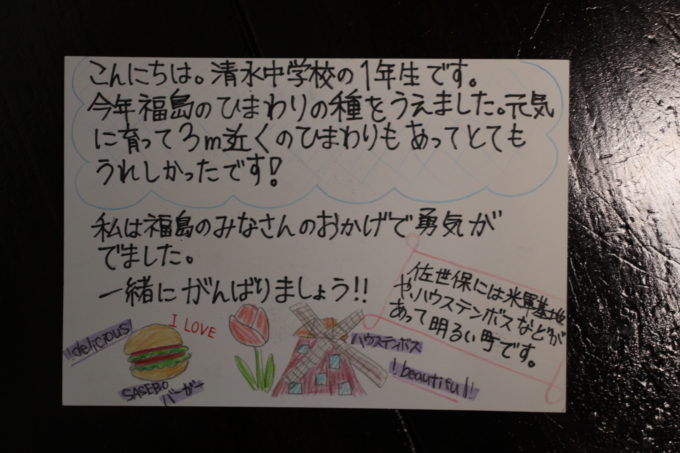 こんにちは。清水中学校の1年生です。
今年福島のひまわりの種をうえました。元気
に育って3m近くのひまわりもあってとても
うれしかったです!
私は福島のみなさんのおかげで勇気が
でました。
一緒にがんばりましょう!!
佐世保には米軍基地
や、ハウステンボスなどが
あって明るい町です。
!delicious!
I LOVE
SASEBO
バーガー
ハウステンボス
!beautiful!